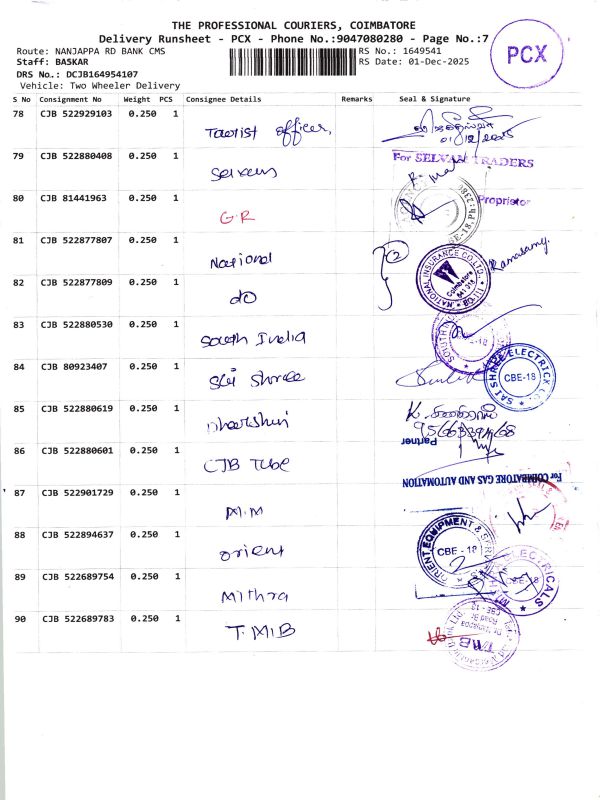 THE PROFESSIONAL COURIERS, COIMBATORE
Delivery Runsheet - PCX - Phone No.:9047080280 - Page No.:7
PCX
Route: NANJAPPA RD BANK CMS
RS No.: 1649541
Staff: BASKAR
RS Date: 01-Dec-2025
DRS No.: DCJB164954107
Vehicle: Two Wheeler Delivery
S No Consignment No Weight PCS Consignee Details Remarks Seal & Signature
78 CJB 522929103 0.250 1 Tourist officer,
01/12/2025
79 CJB 522880408 0.250 1 Selvam
For SELVAM TRADERS
Proprietor
80 CJB 81441963 0.250 1 G.R
81 CJB 522877807 0.250 1 National
2
Ramasamy.
NATIONAL INSURANCE CO. LTD.
Coimbatore
641 018
82 CJB 522877809 0.250 1 do
83 CJB 522880530 0.250 1 South India
84 CJB 80923407 0.250 1 Sri Shree
SAI SHREE ELECTRICK
CBE-18
85 CJB 522880619 0.250 1 Dharshini
Partner
86 CJB 522880601 0.250 1 CJB Tube
For COIMBATORE GAS AND AUTOMATION
87 CJB 522901729 0.250 1 M.M
88 CJB 522894637 0.250 1 Orient
ORIENT EQUIPMENT &
CBE - 18
89 CJB 522689754 0.250 1 Mithra
ELECTRICALS
CBE-18
90 CJB 522689783 0.250 1 T.M.B
TMB